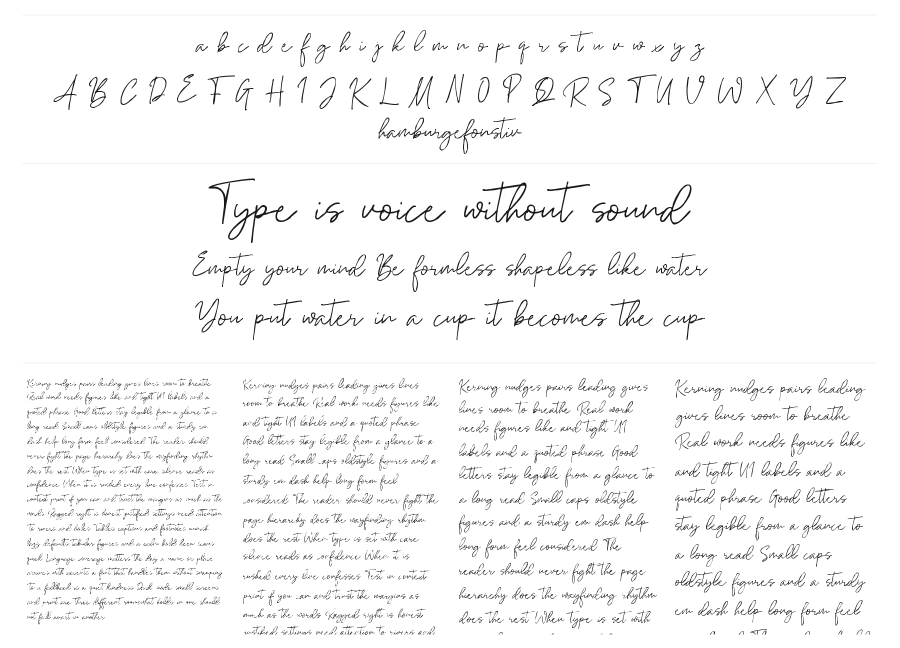 a b c d e f g h i j k l m n o p q r s t u v w x y z
A B C D E F G H I J K L M N O P Q R S T U V W X Y Z
hamburgefonstiv
Type is voice without sound
Empty your mind Be formless shapeless like water
You put water in a cup it becomes the cup
Kerning nudges pairs leading gives lines room to breathe
Real work needs figures like and tight UI labels and a
quoted phrase Good letters stay legible from a glance to a
long read Small caps oldstyle figures and a sturdy em
dash help long form feel considered The reader should
never fight the page hierarchy does the wayfinding rhythm
does the rest When type is set with care silence reads as
confidence When it is rushed every line confesses Test in
context print if you can and trust the margins as much as the
words Ragged right is honest justified settings need attention
to rivers and
Kerning nudges pairs leading gives lines
room to breathe Real work needs figures like
and tight UI labels and a quoted phrase
Good letters stay legible from a glance to a
long read Small caps oldstyle figures and a
sturdy em dash help long form feel
considered The reader should never fight the
page hierarchy does the wayfinding rhythm
does the rest When type is set with care
silence reads as confidence When it is
rushed every line confesses Test in context
print if you can and trust the margins as
much as the words Ragged right is honest
justified settings need attention to rivers and
Kerning nudges pairs leading gives
lines room to breathe Real work
needs figures like and tight UI
labels and a quoted phrase Good
letters stay legible from a glance to
a long read Small caps oldstyle
figures and a sturdy em dash help
long form feel considered The
reader should never fight the page
hierarchy does the wayfinding rhythm
does the rest When type is set with
Kerning nudges pairs leading
gives lines room to breathe
Real work needs figures like
and tight UI labels and a
quoted phrase Good letters
stay legible from a glance to
a long read Small caps
oldstyle figures and a sturdy
em dash help long form feel